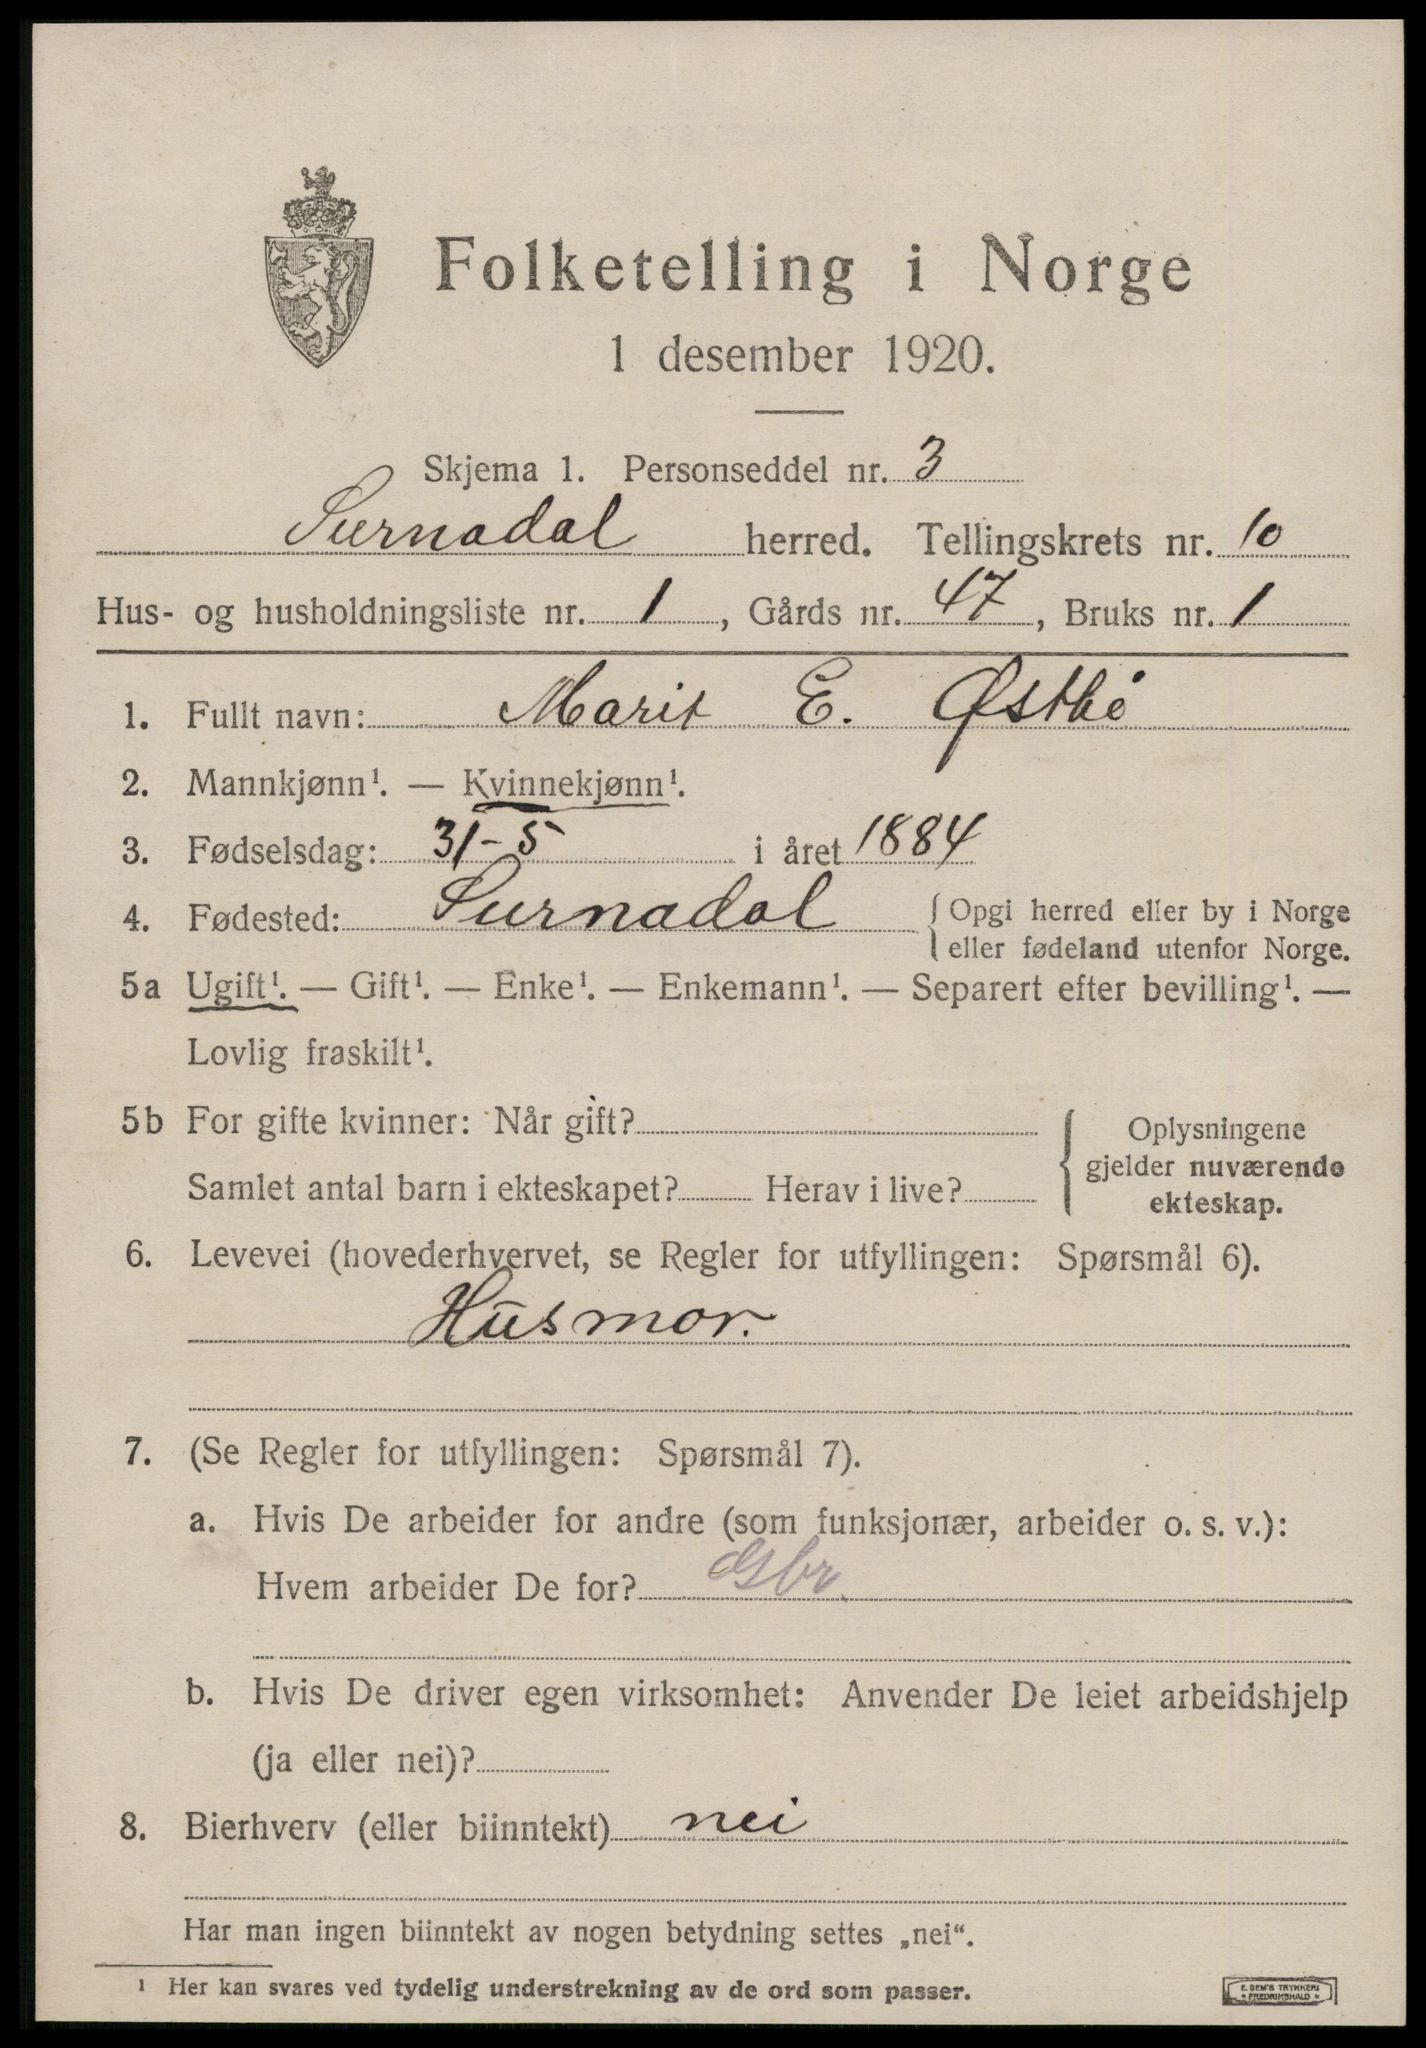 Folketelling i Norge
1 desember 1920.
Skjema 1. Personseddel nr. 3
Surnadal herred. Tellingskrets nr. 10
Hus- og husholdningsliste nr. 1, Gårds nr. 47, Bruks nr. 1
1. Fullt navn: Marit E. Østbö
2. Mannkjønn¹. — Kvinnekjønn¹.
3. Fødselsdag: 31-5 i året 1884
4. Fødested: Surnadal { Opgi herred eller by i Norge
eller fødeland utenfor Norge.
5a Ugift¹. — Gift¹. — Enke¹. — Enkemann¹. — Separert efter bevilling¹. —
Lovlig fraskilt¹.
5b For gifte kvinner: Når gift?
Samlet antal barn i ekteskapet? Herav i live?
Oplysningene
gjelder nuværende
ekteskap.
6. Levevei (hovederhvervet, se Regler for utfyllingen: Spørsmål 6).
Husmor.
7. (Se Regler for utfyllingen: Spørsmål 7).
a. Hvis De arbeider for andre (som funksjonær, arbeider o. s. v.):
Hvem arbeider De for? Gbr.
b. Hvis De driver egen virksomhet: Anvender De leiet arbeidshjelp
(ja eller nei)?
8. Bierhverv (eller biinntekt) nei
Har man ingen biinntekt av nogen betydning settes „nei“.
¹ Her kan svares ved tydelig understrekning av de ord som passer.
E. SEM'S TRYKKERI
FREDRIKSHALD